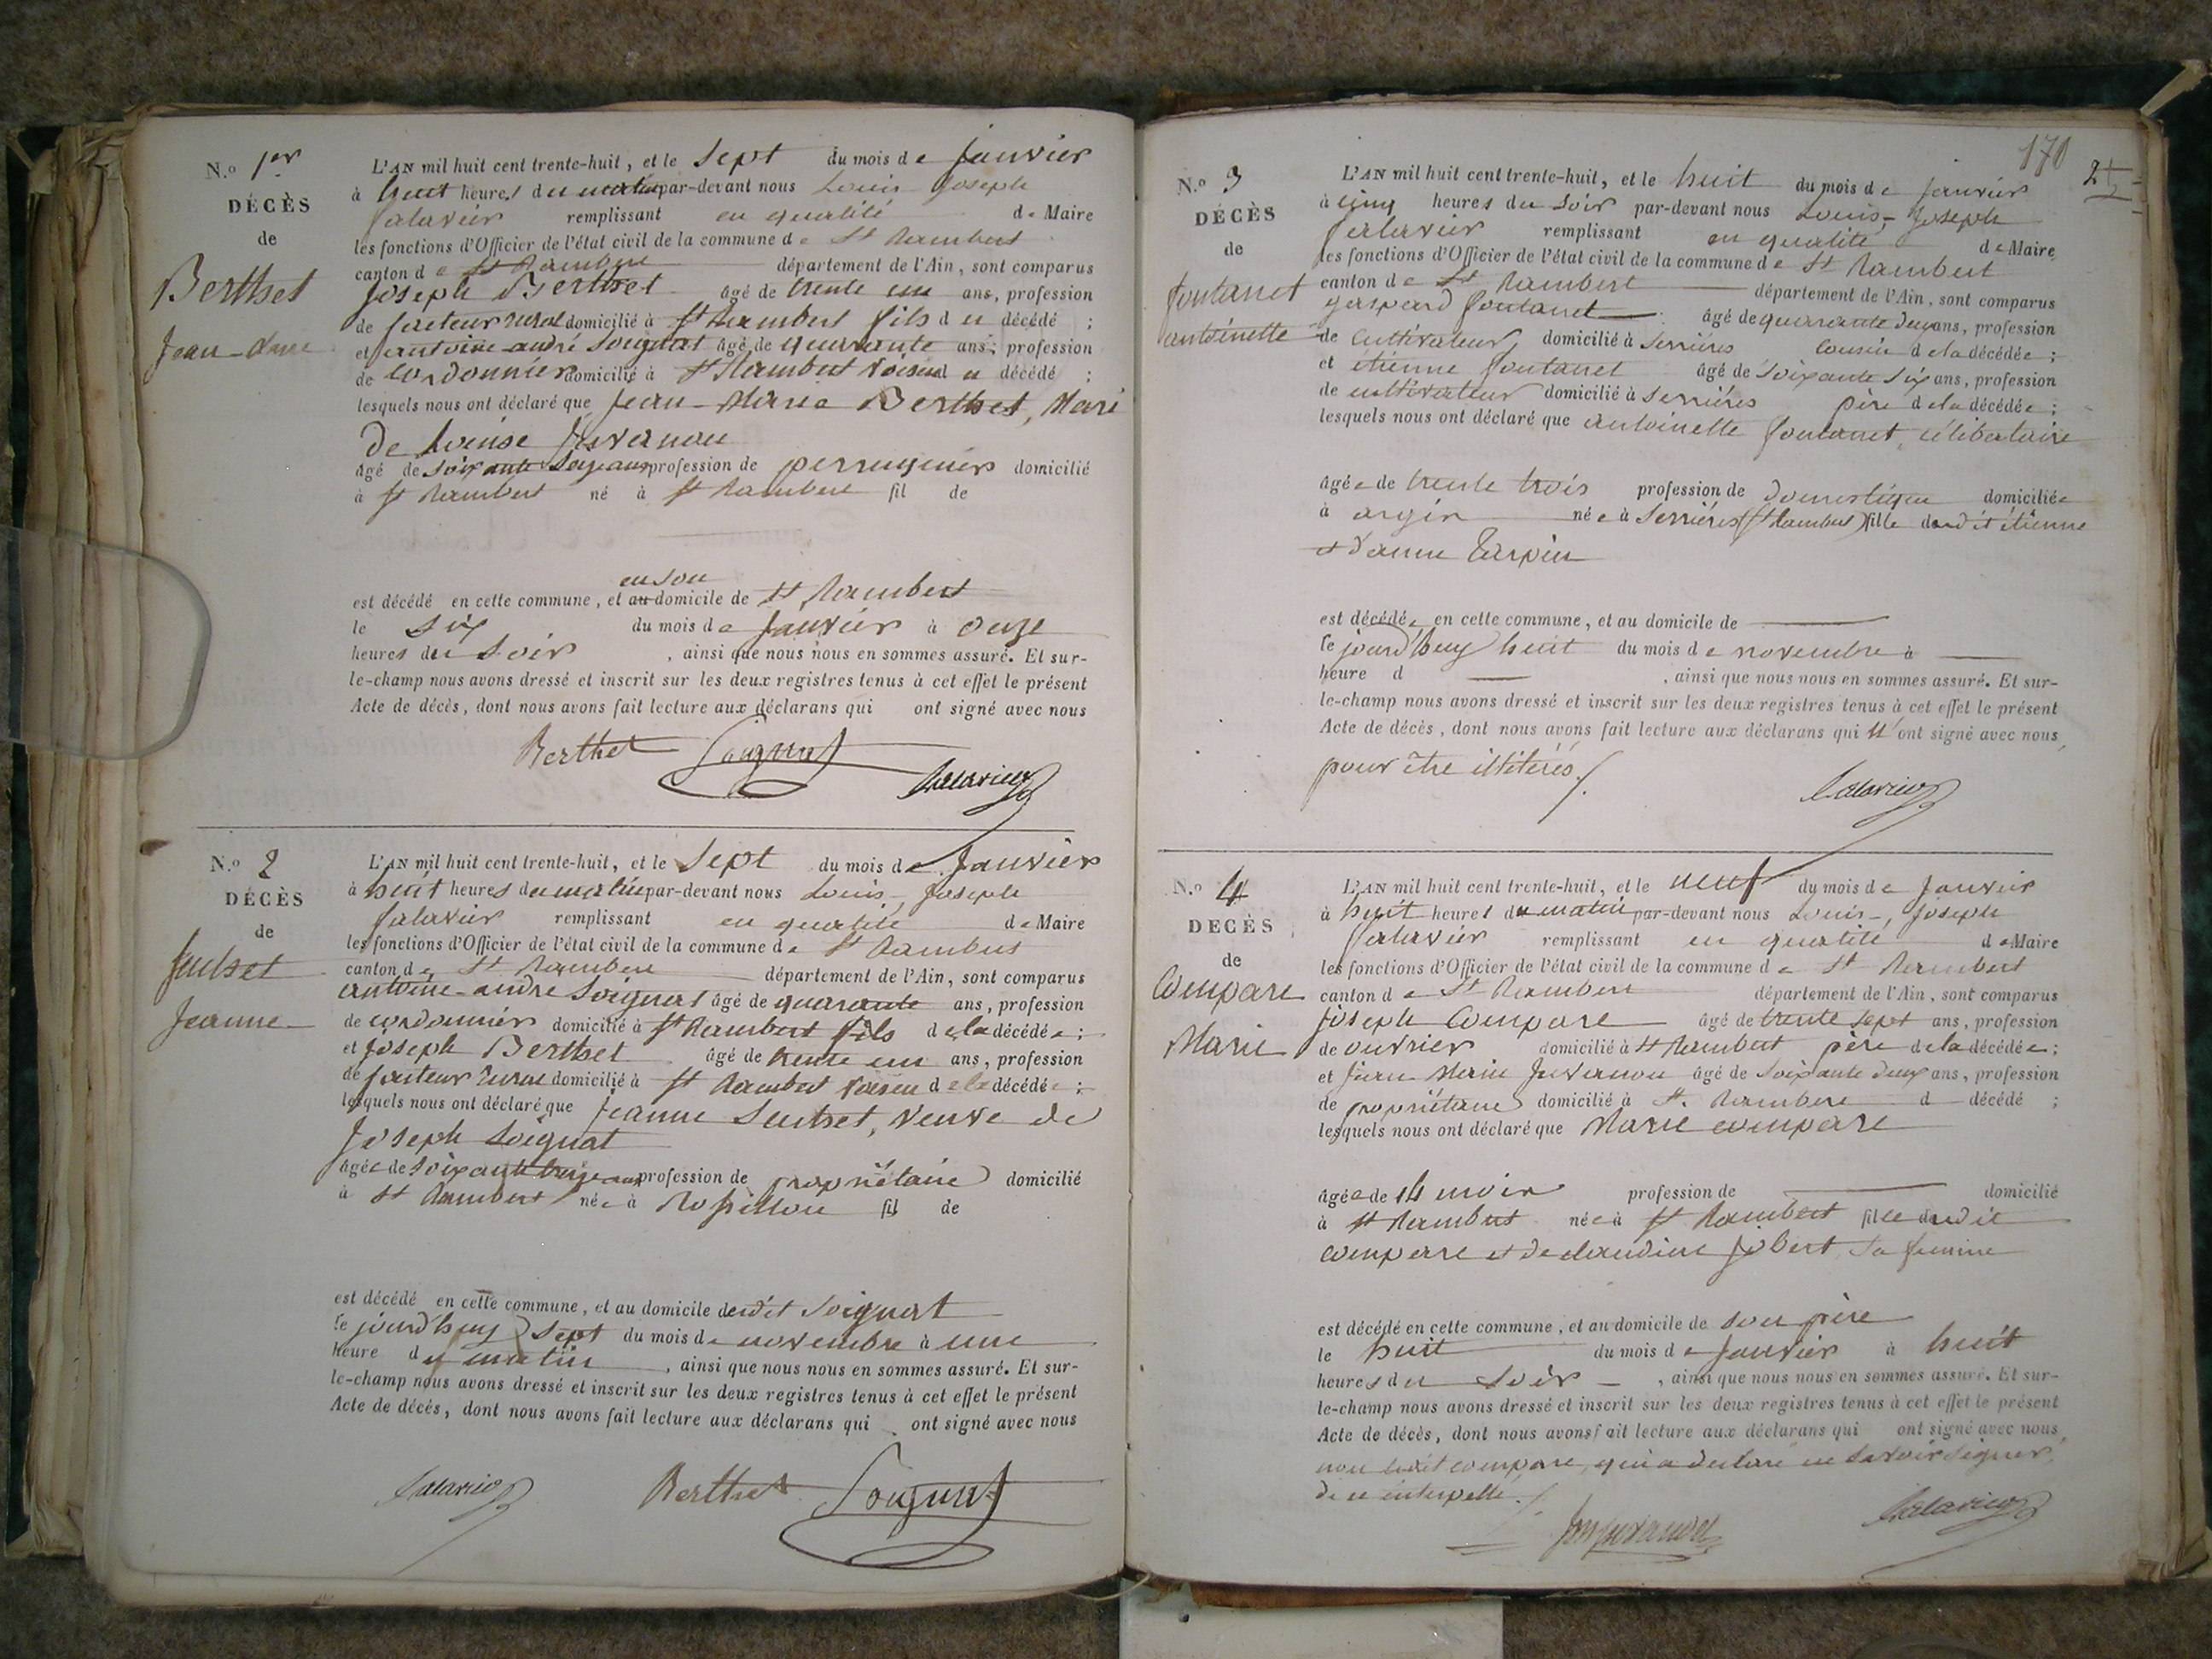 N.º 1er
DÉCÈS
de
Berthet
Jean-
L'AN mil huit cent trente-huit, et le sept du mois de Janvier
à huit heures du matin par-devant nous Louis Joseph
Salavier remplissant en qualité de Maire
les fonctions d'Officier de l'état civil de la commune de St Rambert
canton de St Rambert département de l'Ain, sont comparus
Joseph Berthet âgé de trente un ans, profession
de facteur rural domicilié à St Rambert fils du décédé ;
et antoine-andré Soignat âgé de quarante ans ; profession
de cordonnier domicilié à St Rambert voisin du décédé ;
lesquels nous ont déclaré que Jean-Marie Berthet, Mari
de Louise Juvanon
âgé de soixante ans profession de perruquier domicilié
à St Rambert né à St Rambert fil de
en son
est décédé en cette commune, et au domicile de St Rambert
le six du mois de Janvier à onze
heures du soir , ainsi que nous nous en sommes assuré. Et sur-
le-champ nous avons dressé et inscrit sur les deux registres tenus à cet effet le présent
Acte de décès, dont nous avons fait lecture aux déclarans qui ont signé avec nous
Berthet Soignat
Salavier
N.º 2
DÉCÈS
de
Jeanne
L'AN mil huit cent trente-huit, et le sept du mois de Janvier
à huit heures du matin par-devant nous Louis-Joseph
Salavier remplissant en qualité de Maire
les fonctions d'Officier de l'état civil de la commune de St Rambert
canton de St Rambert département de l'Ain, sont comparus
antoine-andré Soignat âgé de quarante ans, profession
de cordonnier domicilié à St Rambert fils de la décédée ;
et Joseph Berthet âgé de trente un ans, profession
de facteur rural domicilié à St Rambert voisin de la décédée ;
lesquels nous ont déclaré que Jeanne , veuve de
Joseph Soignat
âgée de soixante treize ans profession de propriétaire domicilié
à St Rambert née à Rossillon fil de
est décédé en cette commune, et au domicile dudit Soignat
le jourd'huy sept du mois de novembre à une
heure du matin , ainsi que nous nous en sommes assuré. Et sur-
le-champ nous avons dressé et inscrit sur les deux registres tenus à cet effet le présent
Acte de décès, dont nous avons fait lecture aux déclarans qui ont signé avec nous
Salavier Berthet Soignat
170
N.º 3
DÉCÈS
de
fontanet
antoinette
L'AN mil huit cent trente-huit, et le huit du mois de Janvier
à cinq heures du soir par-devant nous Louis-Joseph
Salavier remplissant en qualité de Maire
les fonctions d'Officier de l'état civil de la commune de St Rambert
canton de St Rambert département de l'Ain, sont comparus
gaspard fontanet âgé de quarante deux ans, profession
de cultivateur domicilié à Serrières cousin de la décédée ;
et étienne fontanet âgé de soixante six ans, profession
de cultivateur domicilié à Serrières père de la décédée ;
lesquels nous ont déclaré que antoinette fontanet, célibataire
âgée de trente trois profession de domestique domiciliée
à argis née à Serrières (St Rambert) fille dudit étienne
et d'anne Tarpin
est décédée en cette commune, et au domicile de
le jourd'huy huit du mois de novembre à
heure d , ainsi que nous nous en sommes assuré. Et sur-
le-champ nous avons dressé et inscrit sur les deux registres tenus à cet effet le présent
Acte de décès, dont nous avons fait lecture aux déclarans qui n'ont signé avec nous
pour être illitérés.
Salavier
N.º 4
DECÈS
de
Compare
Marie
L'AN mil huit cent trente-huit, et le neuf du mois de Janvier
à huit heures du matin par-devant nous Louis-Joseph
Salavier remplissant en qualité de Maire
les fonctions d'Officier de l'état civil de la commune de St Rambert
canton de St Rambert département de l'Ain, sont comparus
Joseph Compare âgé de trente sept ans, profession
de ouvrier domicilié à St Rambert père de la décédée ;
et Jean Marie Juvanon âgé de soixante deux ans, profession
de propriétaire domicilié à St. Rambert d décédé ;
lesquels nous ont déclaré que Marie compare
âgée de 14 mois profession de domicilié
à St Rambert née à St Rambert fille dudit
compare et de claudine Jobert sa femme
est décédé en cette commune, et au domicile de son père
le huit du mois de Janvier à huit
heures du soir , ainsi que nous nous en sommes assuré. Et sur-
le-champ nous avons dressé et inscrit sur les deux registres tenus à cet effet le présent
Acte de décès, dont nous avons fait lecture aux déclarans qui ont signé avec nous,
non ledit compare, qui a déclaré ne savoir signer,
de ce interpellé.
Salavier